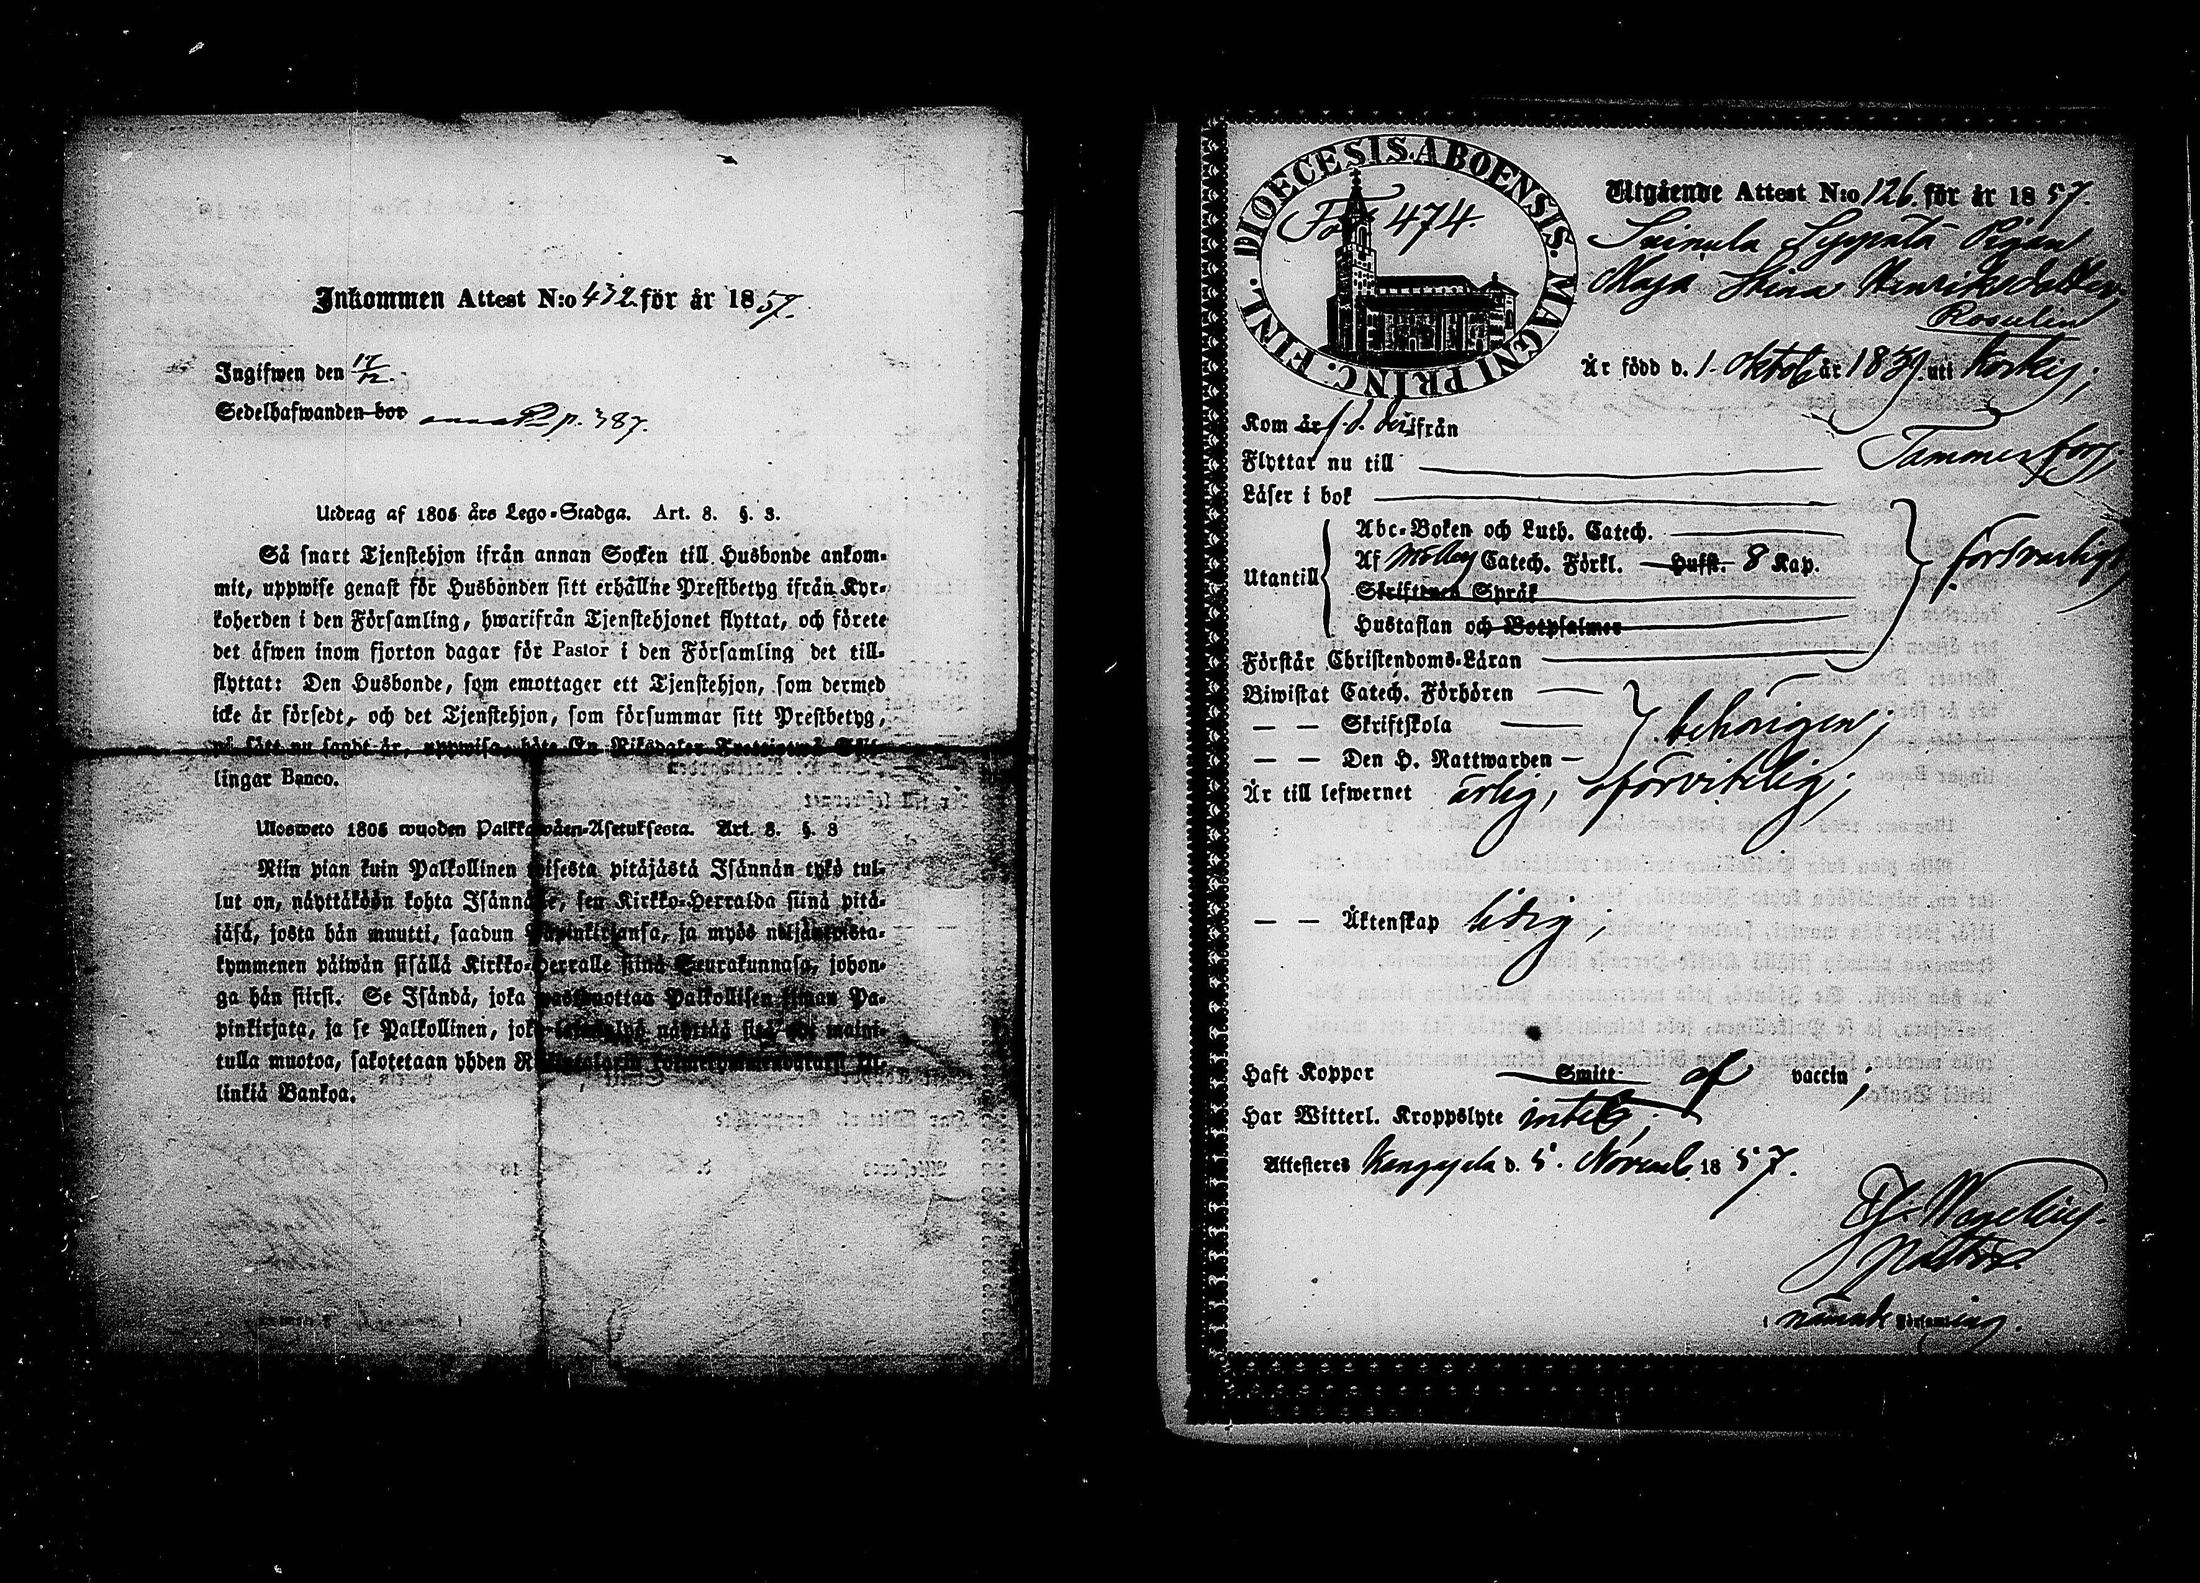 Inkommen Attest N:o 432 för år 1857.
Ingifwen den 17/12.
Sedelhafwanden bor p. 387.
Utdrag af 1805 års Lego-Stadga. Art. 8. §. 3.
Så snart Tjenstehjon ifrån annan Socken till Husbonde ankom-
mit, uppwise genast för Husbonden sitt erhållne Prestbetyg ifrån Kyr-
koherden i den Församling, hwarifrån Tjenstehjonet flyttat, och förete
det äfwen inom fjorton dagar för Pastor i den Församling det till-
flyttat: Den Husbonde, som emottager ett Tjenstehjon, som dermed
icke är försedt, och det Tjenstehjon, som försummar sitt Prestbetyg,
på sätt nu sagdt är, uppwisa, böte En Riksdaler
lingar Banco.
Ulosweto 1805 wuoden Palkkawäen-Asetuksesta. Art. 8. §. 3
Niin pian kuin Palkollinen toisesta pitäjästä Isännän tykö tul-
lut on, näyttäköön kohta Isännälle, sen Kirkko-Herralda siinä pitä-
jäsä, josta hän muutti, saadun Papinkirjansa, ja myös neljäntoista-
kymmenen päiwän sisällä Kirkko-Herralle siinä Seurakunnasa, johon-
ga hän siirsi. Se Isändä, joka wastaanottaa Palkollisen ilman Pa-
pinkirjata, ja se Palkollinen, joka näyttää sitä maini-
tulla muotoa, sakotetaan yhden
linkiä Bankoa.
DIOECESIS. ABOENSIS. MAGNI PRINC. FINL.
Fol 474.
Utgående Attest N:o 126 för år 1857.
Pigan
Maja Stina Henriksdotter
Rosulin
Är född d. 1 Oktob år 1839 uti
Kom år ifrån
Flyttar nu till Tammerfors;
Läser i bok
Utantill
Abc-Boken och Luth. Catech.
Af Catech. Förkl. Hufst. 8 Kap.
Skriftenes Språk
Hustaflan och Botpsalmer
försvarligt;
Förstår Christendoms-Läran
Biwistat Catech. Förhören
— — Skriftskola behörigen;
— — Den H. Nattwarden
Är till lefwernet ärlig, oförvitelig;
— — Äktenskap ledig;
Haft Koppor Smitt af vaccin;
Har Witterl. Kroppslyte intet;
Attesteres Kangasala d. 5. Novemb. 1857.
Pastor
i nämnde Församling.